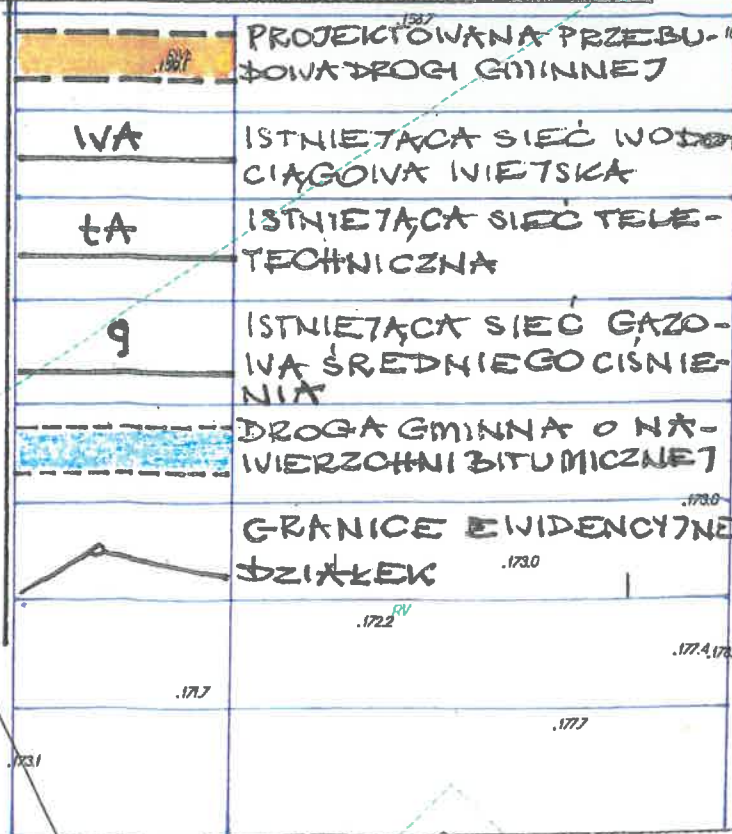 .158.7
PROJEKTOWANA PRZEBU-
DOWA DROGI GMINNEJ
WA
ISTNIEJĄCA SIEĆ WODO
CIĄGOWA WIEJSKA
tA
ISTNIEJĄCA SIEĆ TELE-
TECHNICZNA
g
ISTNIEJĄCA SIEĆ GAZO-
WA ŚREDNIEGO CIŚNIE-
NIA
DROGA GMINNA O NA-
WIERZCHNI BITUMICZNEJ
.173.0
GRANICE EWIDENCYJNE
DZIAŁEK
.173.0
.172.2
RV
.177.4
.171.7
.177.7
.173.1